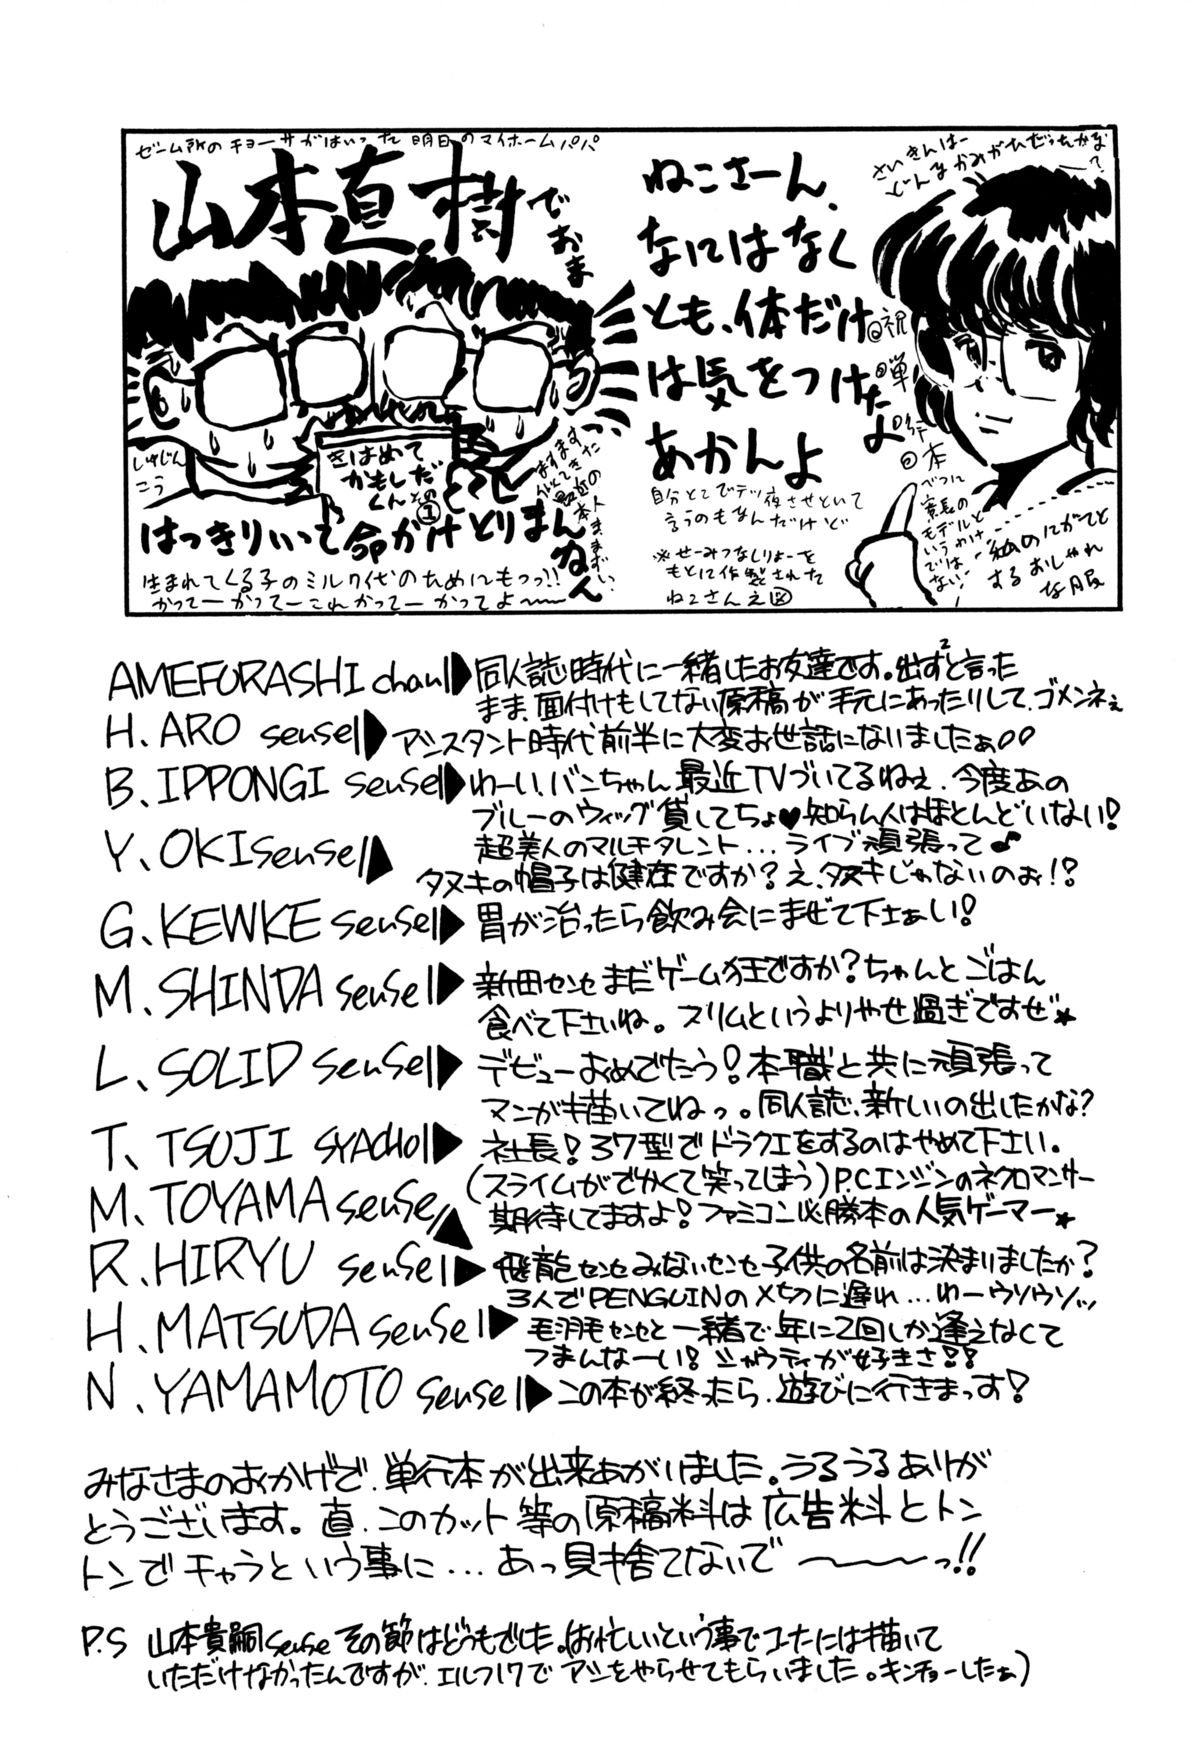 ゼーム所のチョーサがはいった明日のマイホームパパ
山本直樹でおま
しげじん
こう
きはめて
かもしだ
くんその①
はっきりいって命がけとりまんねん
生まれてくる子のミルク代のためにもっっ!!
かってーかってーこれかってーかってよ〜〜
ねこさーん、
なにはなく
とも、体だけ
は気をつけた
あかんよ
自分とこでテツ夜させといて
言うのもなんだけど
※せーみつなしりょーを
もとに作製された
ねこさんえ図
さいきんはー
どんなかみがただったかな?
祝単行本
べつに
家長の
モデルと
いうわけ
ではない!
私のにがてと
するおしゃれ
な服
AMEFURASHI chan▶同人誌時代に一緒したお友達です。出ず²と言った
まま、面付けもしてない原稿が手元にあったりして、ゴメンネぇ
H. ARO sensei▶アシスタント時代前半に大変お世話にないましたぁ!!
B. IPPONGI sensei▶わーい、バンちゃん最近TVづいてるねぇ、今度あの
ブルーのウィッグ貸してちょ♥知らん人はほとんどいない!
Y. OKI sensei▲超美人のマルチタレント...ライブ頑張って♪
タヌキの帽子は健在ですか?え、タヌキじゃないのぉ!?
G. KEWKE sensei▶胃が治ったら飲み会にまぜて下さぁい!
M. SHINDA sensei▶新田センセまだゲーム狂ですか?ちゃんとごはん
食べて下さいね。スリムというよりやせ過ぎですぜ★
L. SOLID sensei▶デビューおめでたう!本職と共に頑張って
マンガも描いてねっ。同人誌、新しいの出したかな?
T. TSUJI SYACHO▶社長!37型でドラクエをするのはやめて下さい。
(スライムがでかくて笑ってしまう)P.Cエンジンのネクロマンサー
M. TOYAMA sensei▲期待してますよ!ファミコン必勝本の人気ゲーマー★
R. HIRYU sensei▶飛龍センセみないセンセ子供の名前は決まりましたか?
3人でPENGUINの〆切に遅れ...わーウソウソッ
H. MATSUDA sensei▶毛羽毛センセと一緒で年に2回しか逢えなくて
つまんなーい!シャウティが好きさ!!
N. YAMAMOTO sensei▶この本が終ったら、遊びに行きまっす!
みなさまのおかげで、単行本が出来あがいました。うるうるありが
とうございます。直、このカット等の原稿料は広告料とトン
トンでチャラという事に...あっ見捨てないで〜〜〜っ!!
P.S 山本貴嗣senseその節はどうもでした。(お忙しいという事でコチたには描いて
いただけなかったんですが、エルフ17でアシをやらせてもらいました。キンチョーしたぁ)